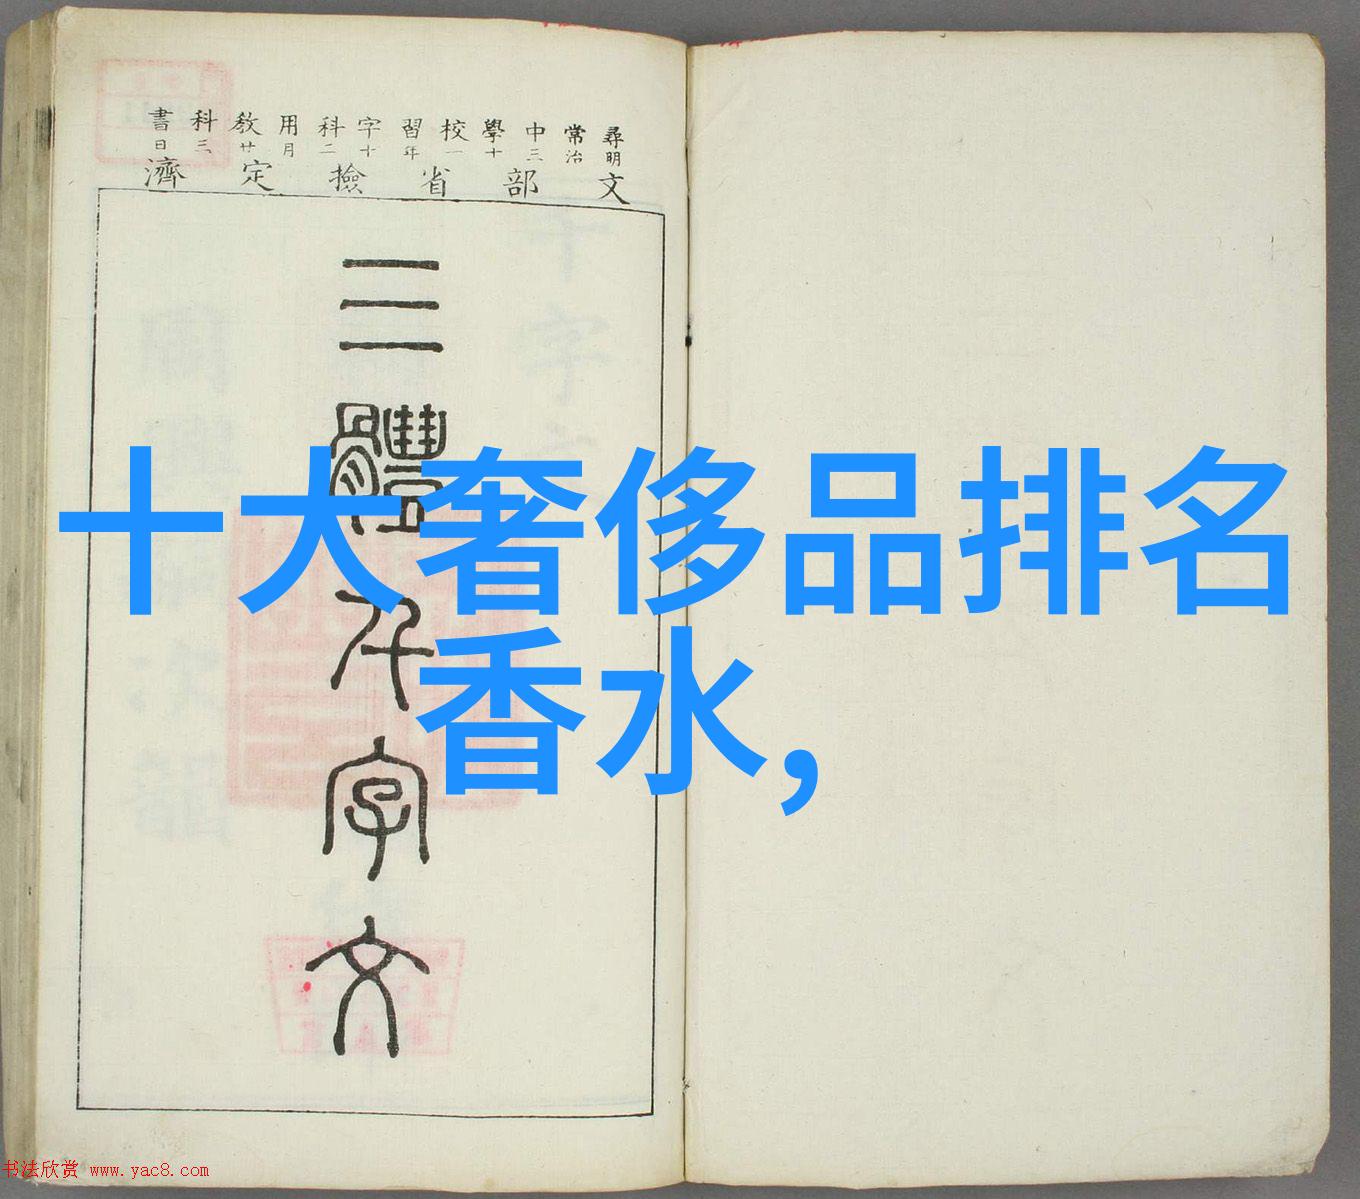 尋常中學校習字科用教科書
明治三十一年十二月廿三日
文部省撿定濟
三體千字文
十大奢侈品排名
香水,
书法欣赏 www.yac8.com